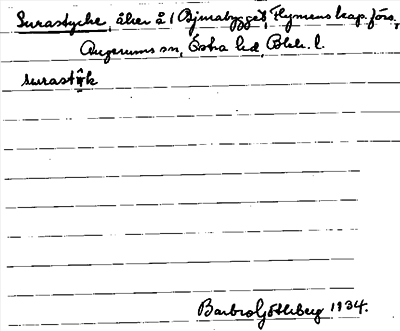 Surastycke, åker å 1 Bjmabygget, Flymens kap. förs.,
Augerums sn, Östra hd, Blek. l.
surastyk
Barbro Götlberg 1934.